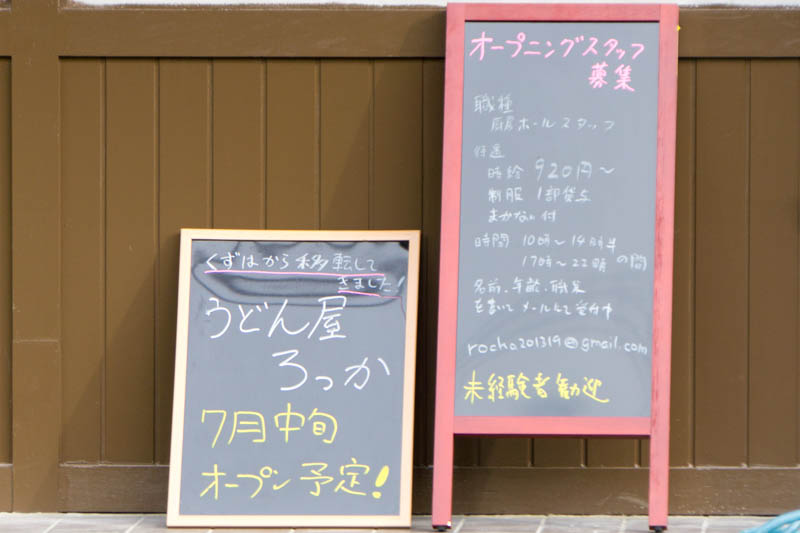 くずはから移転して
きました！
うどん屋
ろっか
7月中旬
オープン予定！
オープニングスタッフ
募集
職種
厨房ホールスタッフ
待遇
時給 920円〜
制服 1部貸与
まかない付
時間 10時〜14時半
17時〜22時 の間
名前、年齢、職業
を書いてメールにて受付中
rocho201319@gmail.com
未経験者歓迎